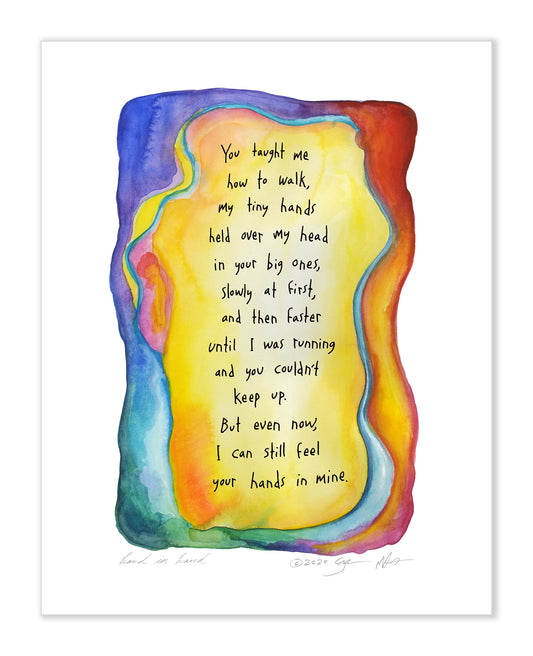 You taught me
how to walk,
my tiny hands
held over my head
in your big ones,
slowly at first,
and then faster
until I was running
and you couldn't
keep up.
But even now,
I can still feel
your hands in mine.
hand in hand ©2020